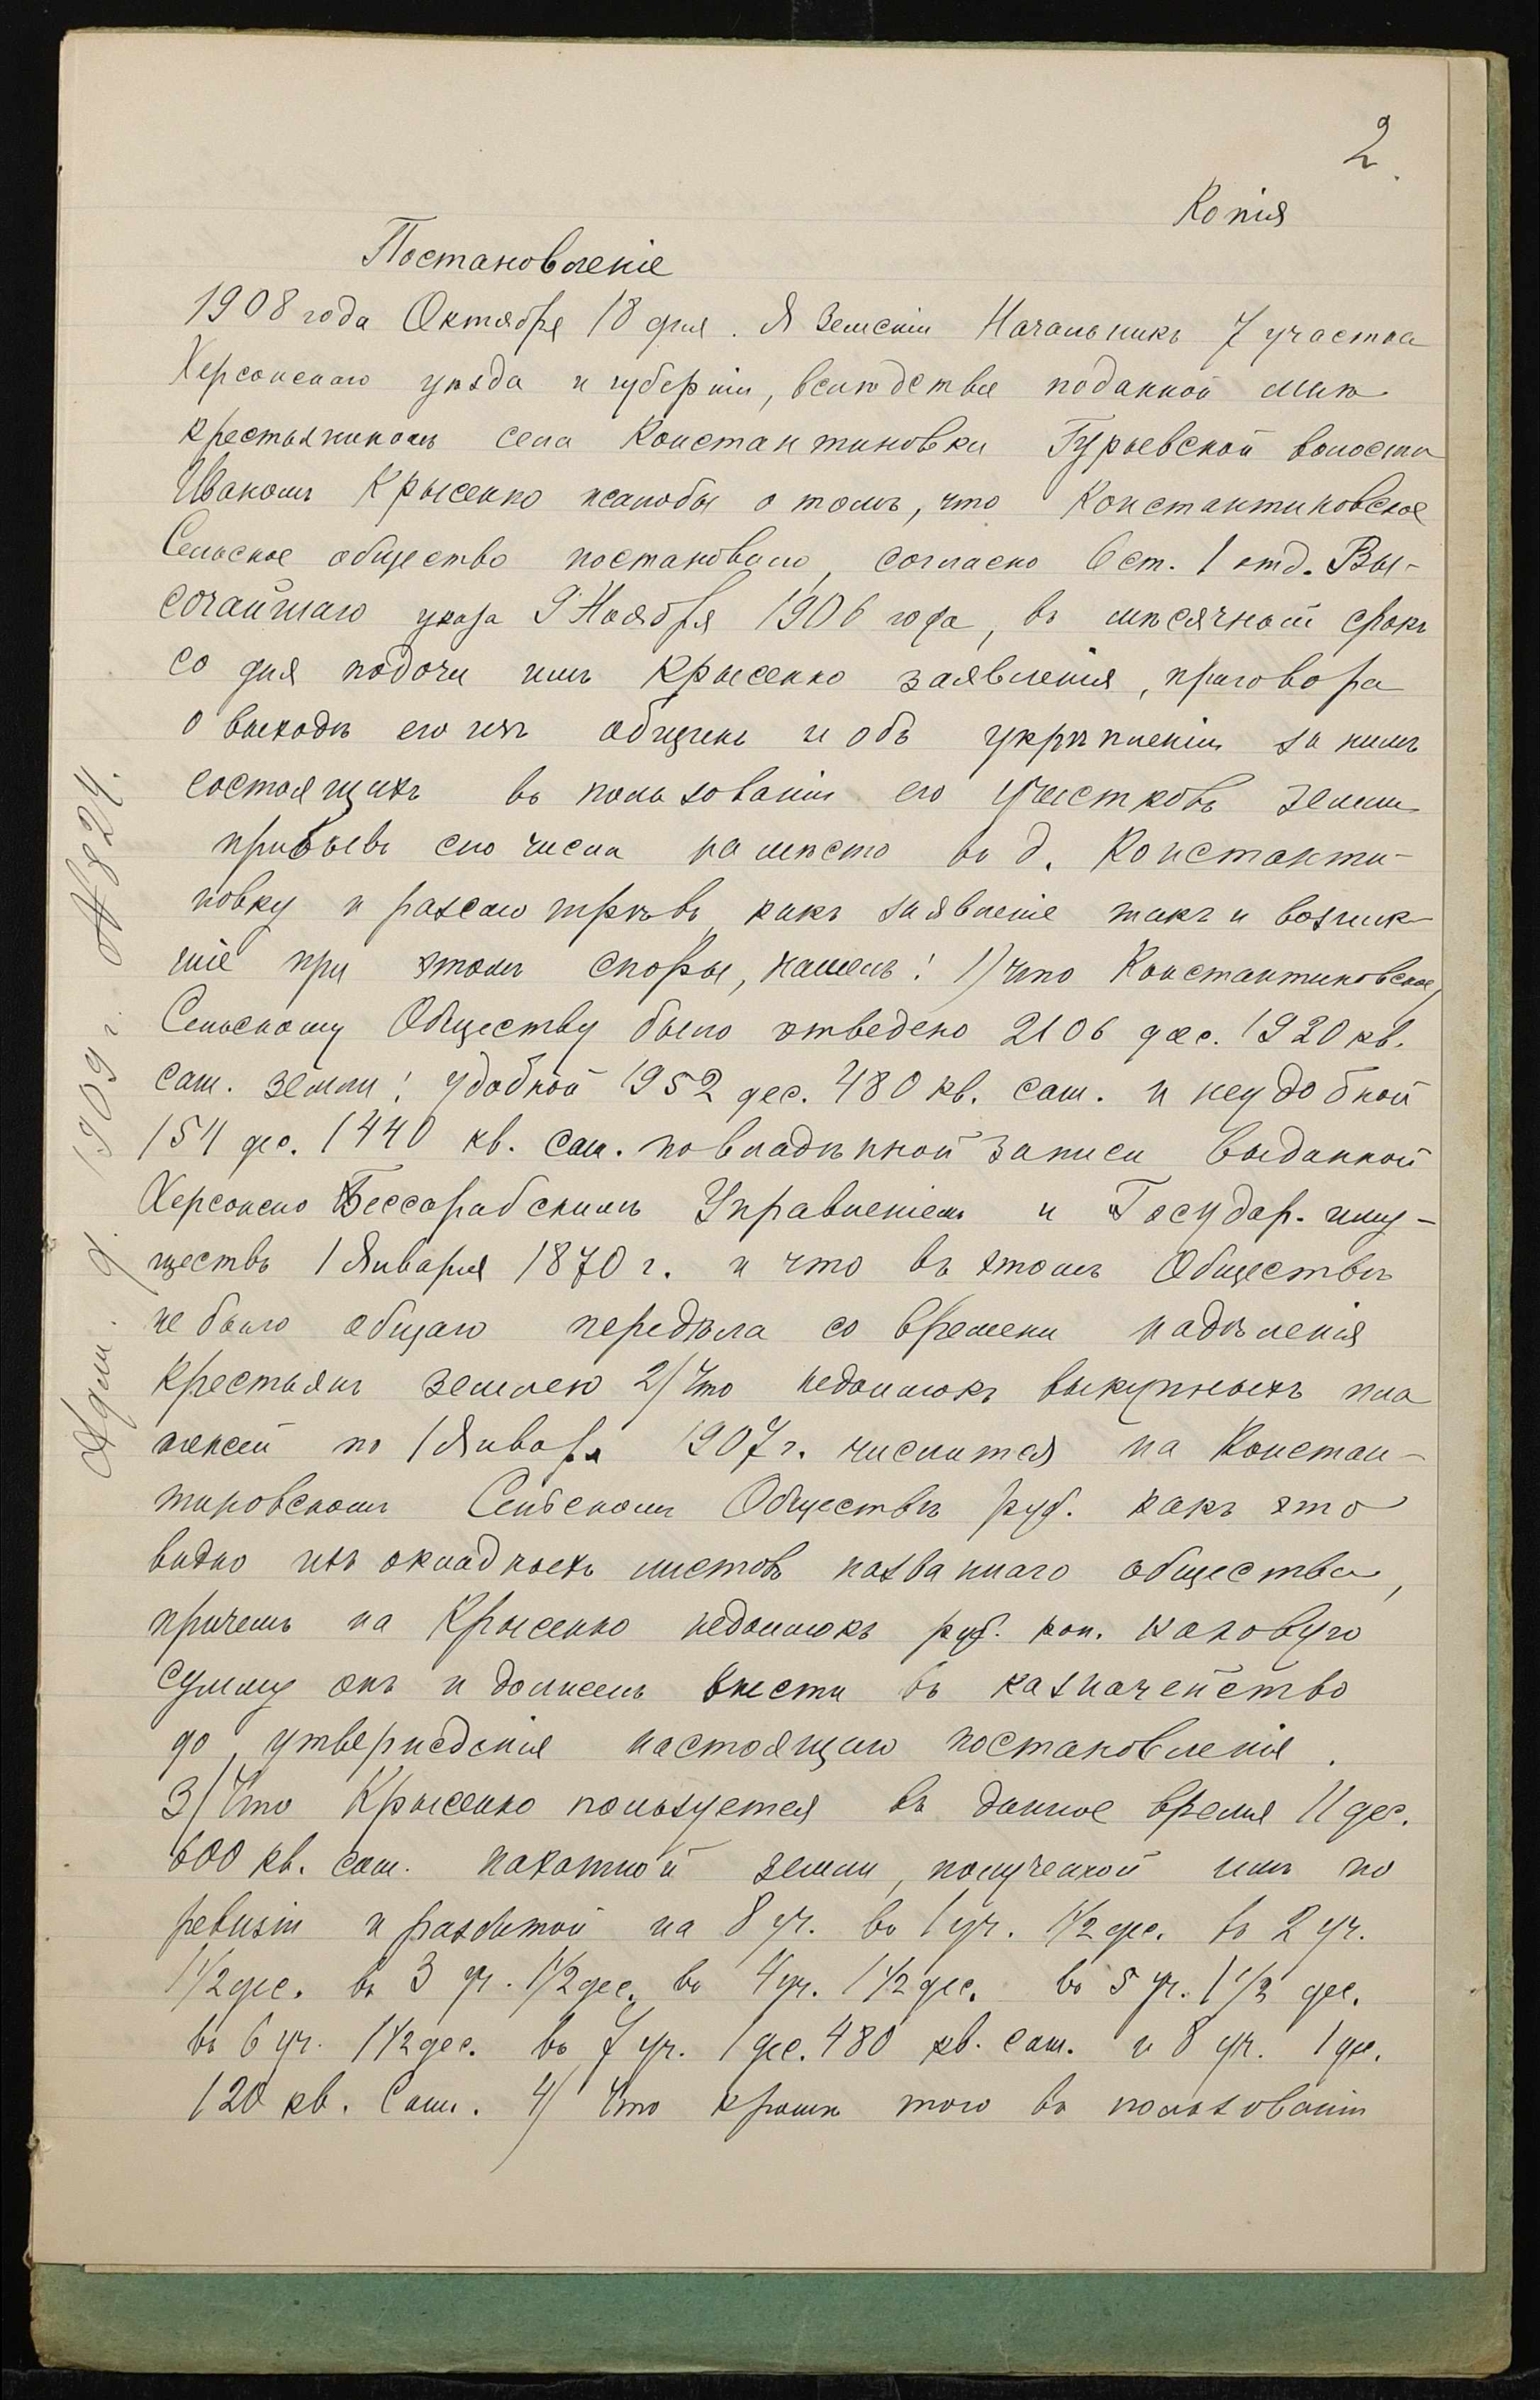 2.
Копія
Постановленіе
1908 года Октября 18 дня. Я Земскій Начальникъ 7 участка
Херсонскаго уѣзда и губерніи, вслѣдствіе поданной мнѣ
крестьяниномъ села Константиновки Гурьевской волости
Иваномъ Крысенко жалобы о томъ, что Константиновское
Сельское общество постановило, согласно 6 ст. 1 отд. Вы-
сочайшаго указа 9 Ноября 1906 года, въ мѣсячный срокъ
со дня подачи имъ Крысенко заявленія, приговора
о выходѣ его изъ общины и объ укрѣпленіи за нимъ
состоящихъ въ пользованіи его участковъ земли
прибывъ сего числа на мѣсто въ д. Константи-
новку и разсмотрѣвъ какъ заявленіе такъ и возник-
шіе при этомъ споры, нашелъ: 1) что Константиновскому
Сельскому Обществу было отведено 2106 дес. 1920 кв.
саж. земли: удобной 1952 дес. 480 кв. саж. и неудобной
154 дес. 1440 кв. саж. по владѣнной записи выданной
Херсонско Бессарабскимъ Управленіемъ и Государ. иму-
ществъ 1 Января 1870 г. и что въ этомъ Обществѣ
не было общаго передѣла со времени надѣленія
крестьянъ землею 2) Что недоимокъ выкупныхъ пла
тежей по 1 Января 1907 г. числится на Констан-
тиновскомъ Сельскомъ Обществѣ руб. какъ это
видно изъ окладныхъ листовъ названнаго общества,
причемъ на Крысенко недоимокъ руб. коп. каковую
сумму онъ и долженъ внести въ казначейство
до утвержденія настоящаго постановленія.
3) Что Крысенко пользуется въ данное время 11 дес.
600 кв. саж. пахатной земли, полученной имъ по
ревизіи и разбитой на 8 уч. въ 1 уч. 1 1/2 дес. въ 2 уч.
1 1/2 дес. въ 3 уч. 1 1/2 дес. въ 4 уч. 1 1/2 дес. въ 5 уч. 1 1/2 дес.
въ 6 уч. 1 1/2 дес. въ 7 уч. 1 дес. 480 кв. саж. и 8 уч. 1 дес.
120 кв. Саж. 4) Что кромѣ того въ пользованіи
Адм. д. 1909 г. № 824.